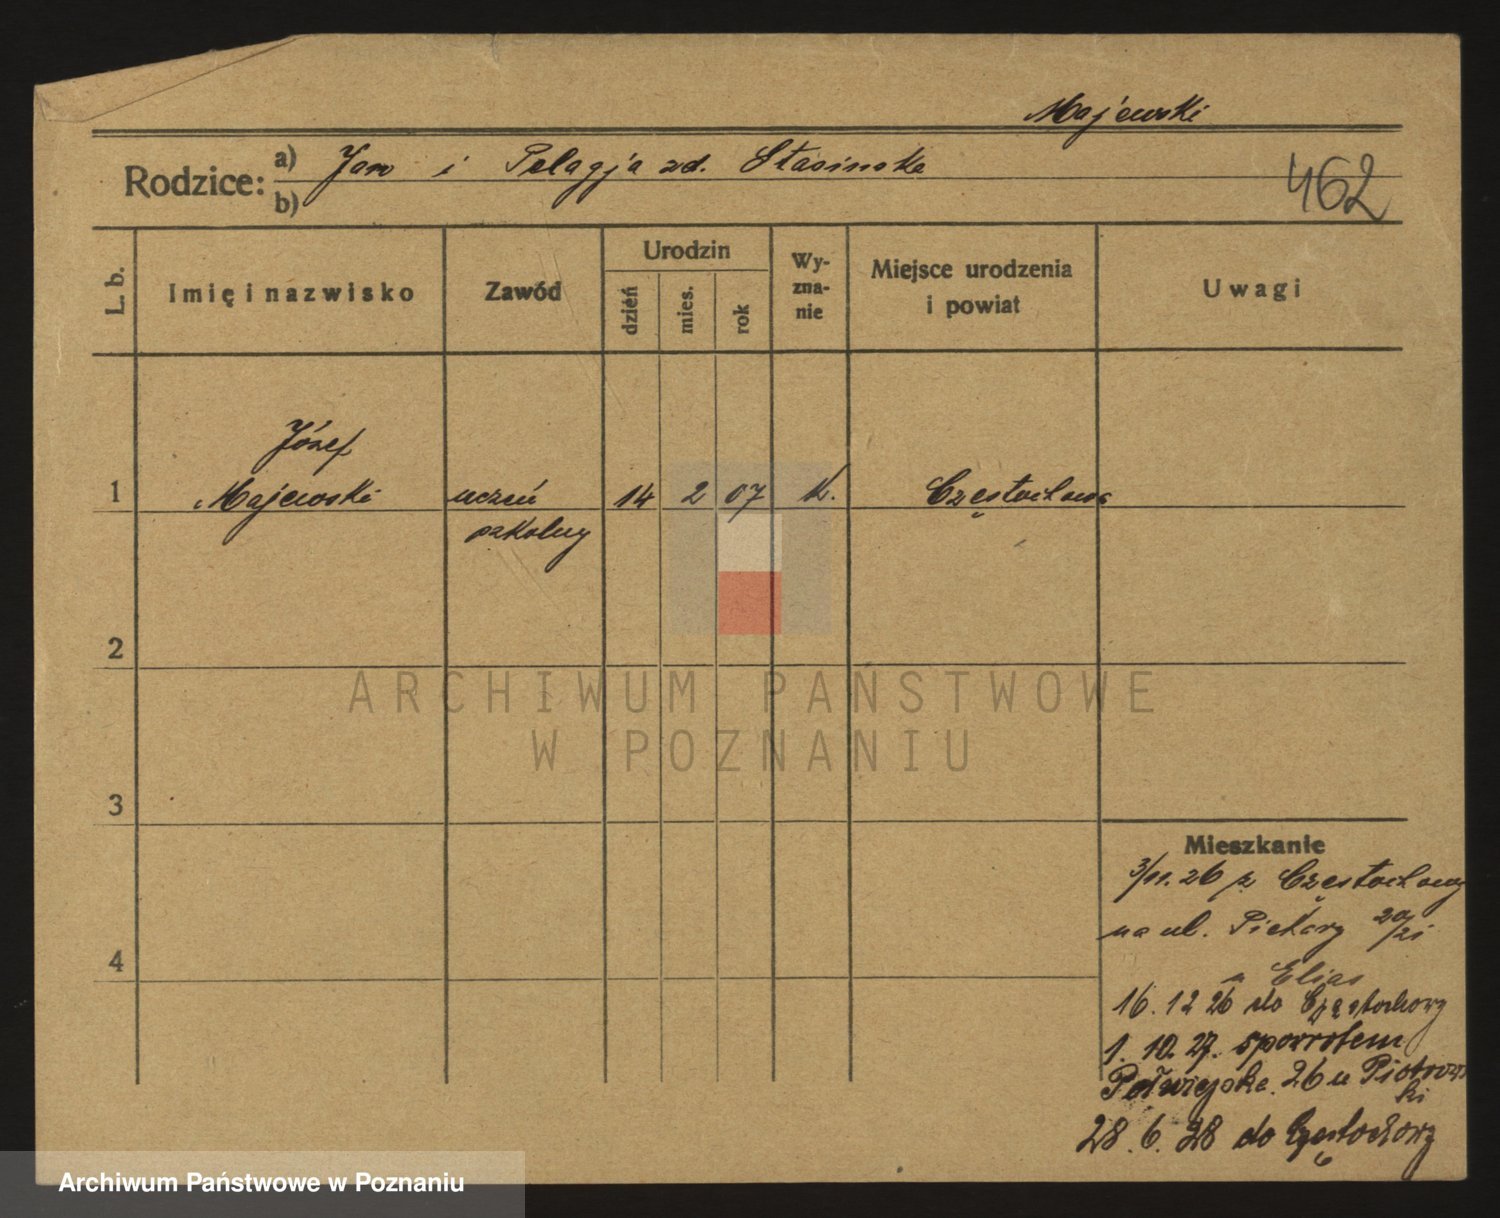 Majewski
Rodzice: a) Jan i Pelagja zd. Stasinska
b)
462
L. b.
Imię i nazwisko
Zawód
Urodzin
dzień
mies.
rok
Wy-
zna-
nie
Miejsce urodzenia
i powiat
Uwagi
Józef
1 Majewski uczeń 14 2 07 k. Częstochowa
szkolny
2
3
4
ARCHIWUM PAŃSTWOWE
W POZNANIU
Mieszkanie
3/11.26 z Częstochowy
na ul. Piekary 20/21
u Elias
16.12 26 do Częstochowy
1. 10. 27. spowrotem
Półwiejska. 26 u Piotrows
ki
28. 6. 28 do Częstochowy
Archiwum Państwowe w Poznaniu